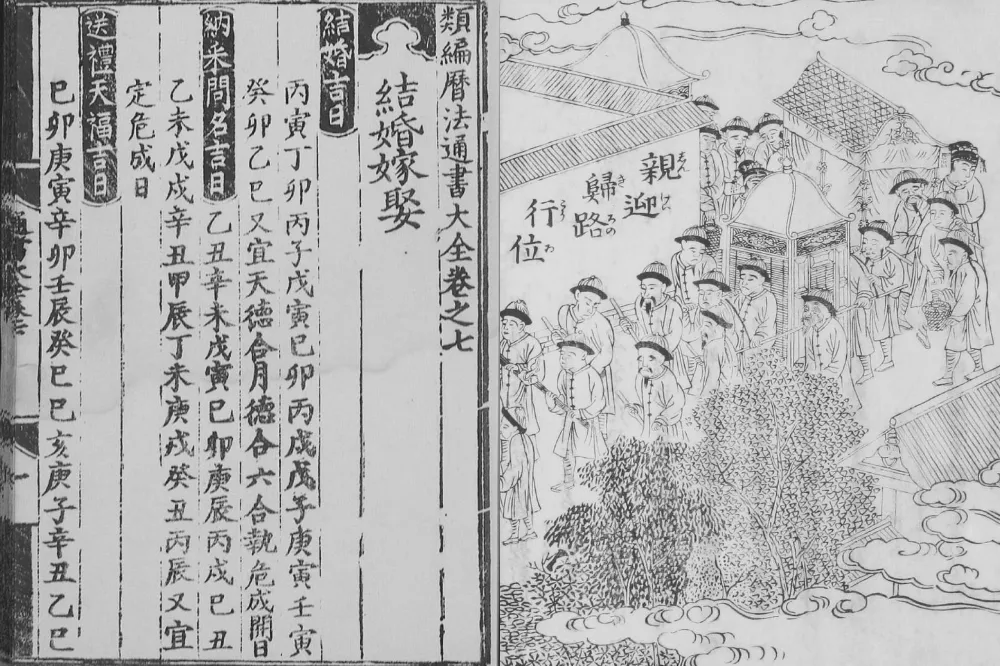 類編曆法通書大全卷之七
結婚嫁娶
結婚吉日
丙寅丁卯丙子戊寅巳卯丙戌戊子庚寅壬寅
癸卯乙巳又宜天德合月德合六合執危成開日
納采問名吉日乙丑辛未戊寅巳卯庚辰丙戌巳丑
乙未戊戌辛丑甲辰丁未庚戌癸丑丙辰又宜
定危成日
送禮天福吉日
巳卯庚寅辛卯壬辰癸巳巳亥庚子辛丑乙巳
一
親迎
歸路
行位